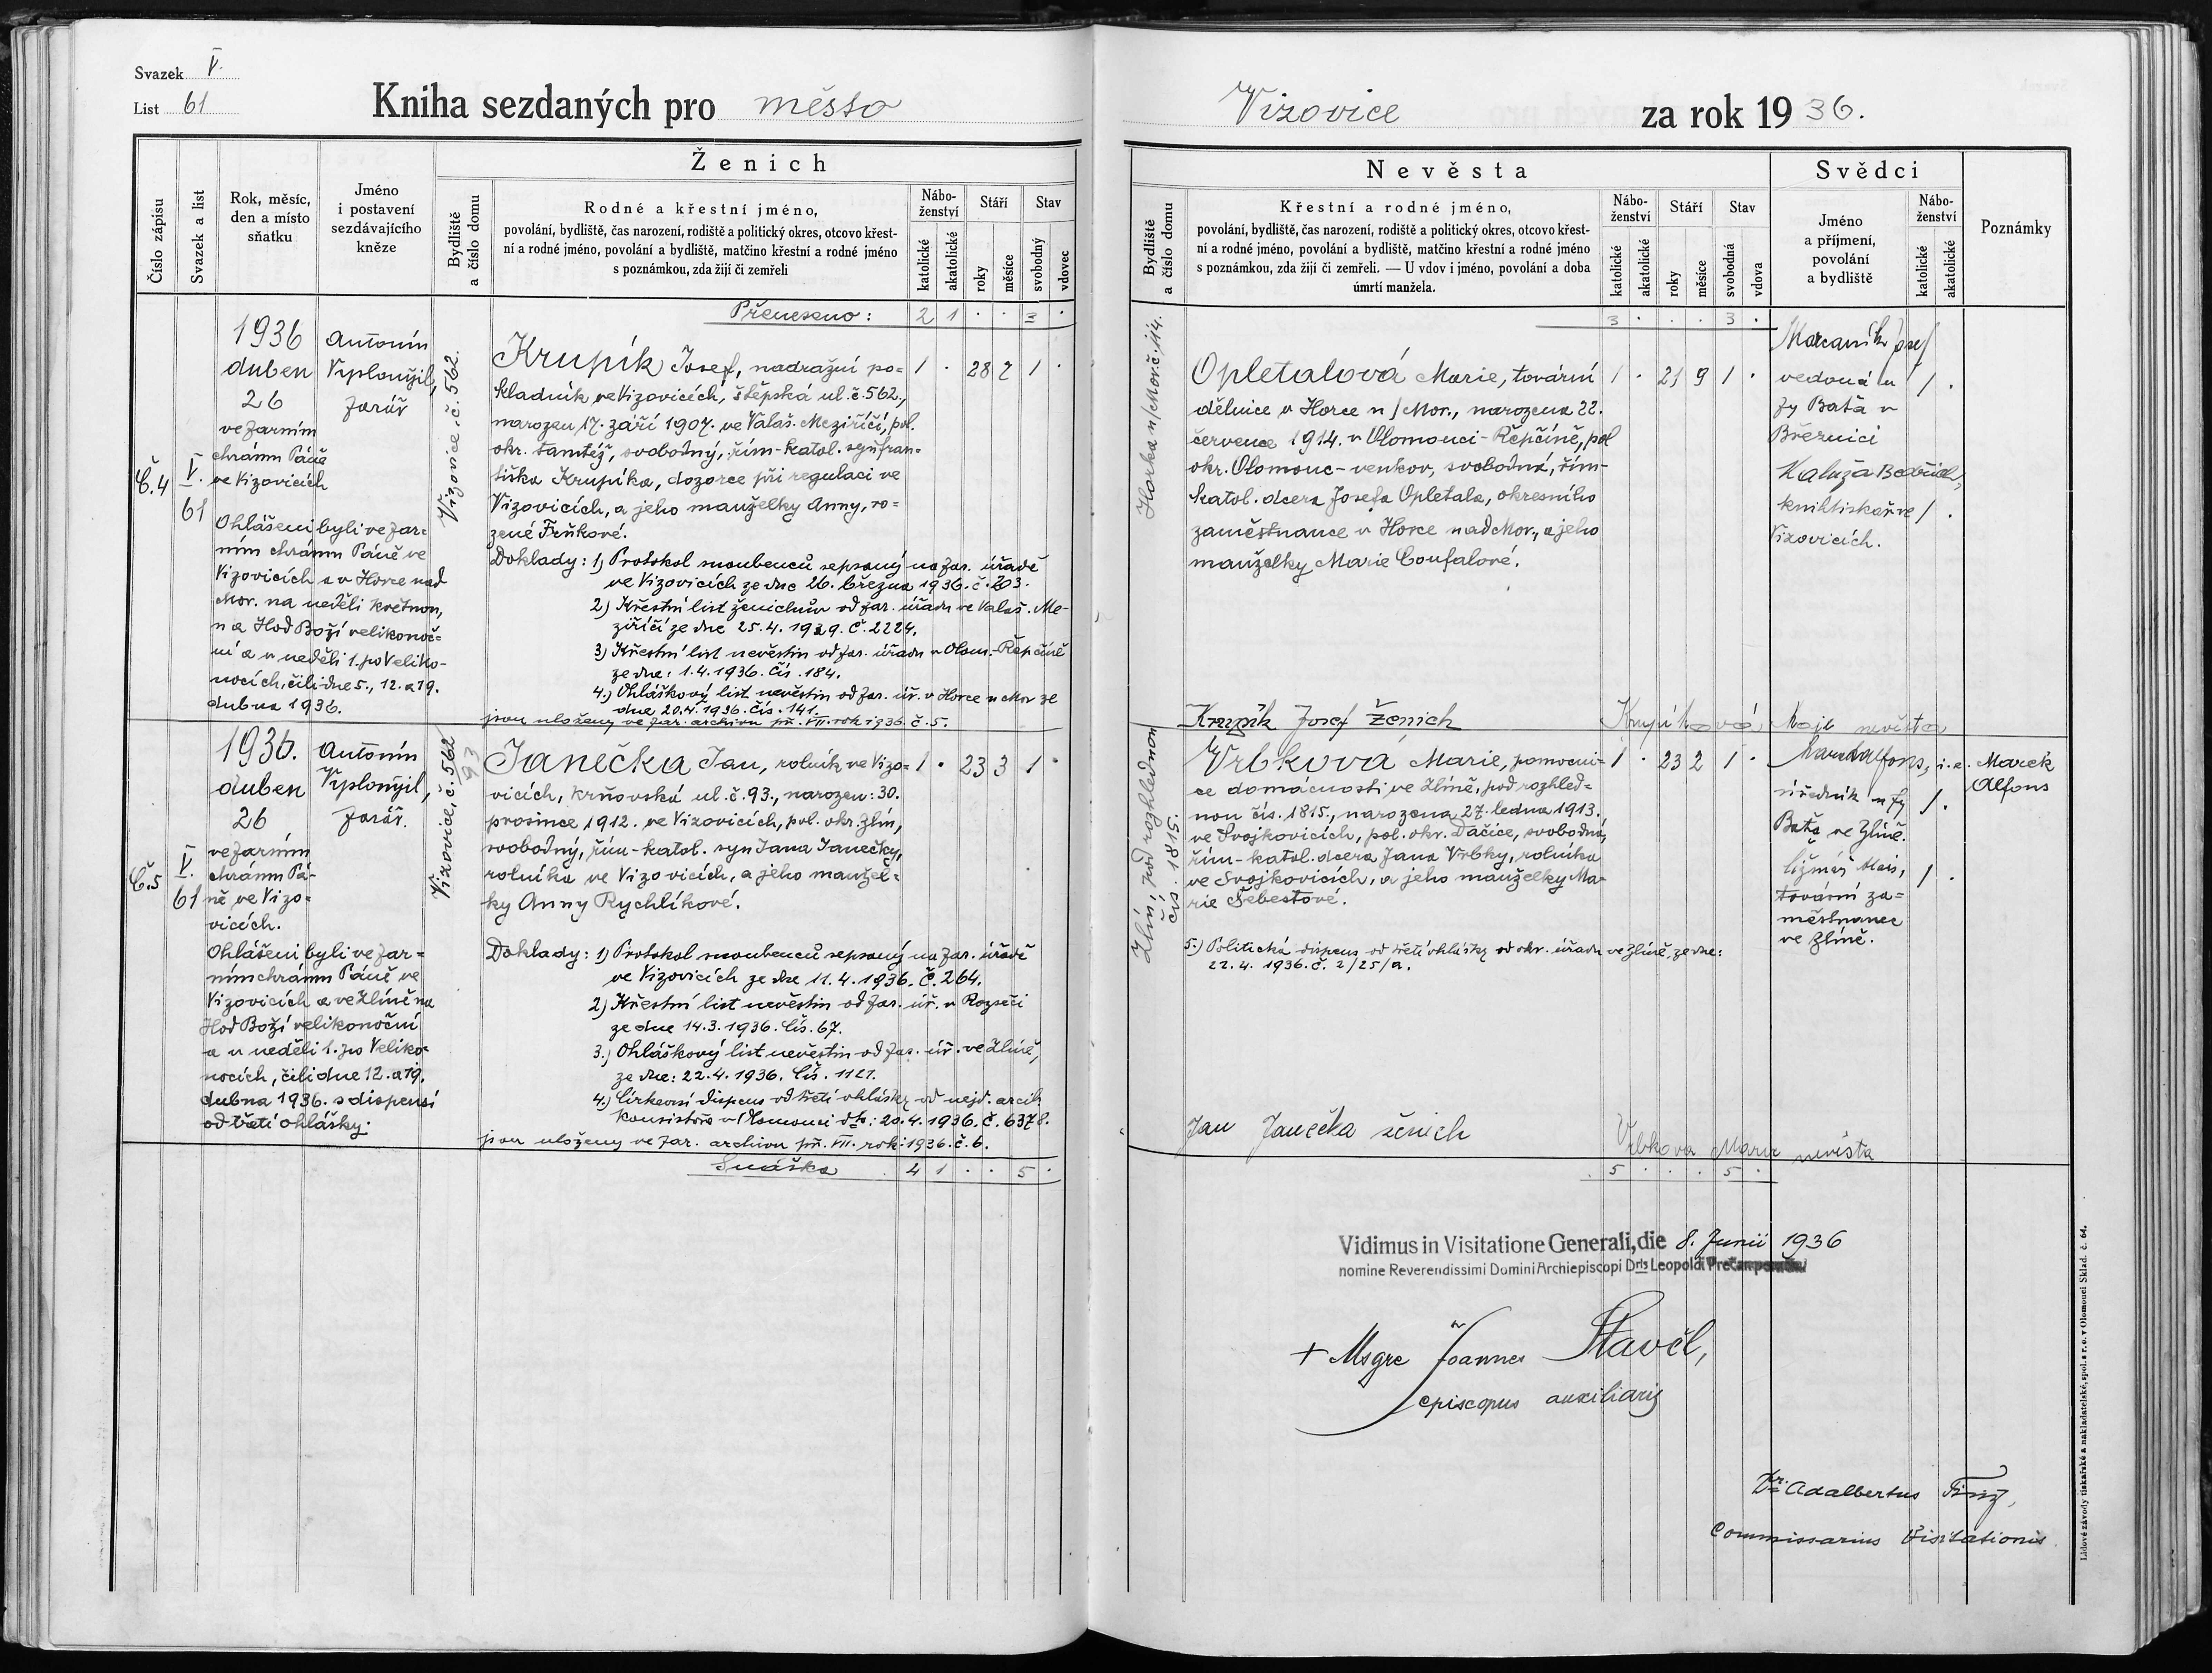 Svazek V.
List 61
Kniha sezdaných pro město
Číslo zápisu
Svazek a list
Rok, měsíc,
den a místo
sňatku
Jméno
i postavení
sezdávajícího
kněze
Ženich
Bydliště
a číslo domu
Rodné a křestní jméno,
povolání, bydliště, čas narození, rodiště a politický okres, otcovo křest-
ní a rodné jméno, povolání a bydliště, matčino křestní a rodné jméno
s poznámkou, zda žijí či zemřeli
Nábo-
ženství
katolické
akatolické
Stáří
roky
měsíce
Stav
svobodný
vdovec
Přeneseno: 2 1 . . 3 .
Č. 4
V.
61
1936
duben
26
ve farním
chrámu Páně
ve Vizovicích
Ohlášeni byli ve far=
ním chrámu Páně ve
Vizovicích a v Horce nad
Mor. na neděli květnou,
na Hod Boží velikonoč=
ní a v neděli 1. po Veliko-
nocích, čili dne 5., 12. a 19.
dubna 1936.
Antonín
Vyplonýil,
farář
Vizovice, č. 562.
Krupík Josef, nadražní po= 1 . 28 7 1 .
kladník ve Vizovicích, štěpská ul. č. 562.,
narozen 17. září 1907. ve Valaš. Meziříčí, pol.
okr. tamtéž, svobodný, řím-katol. syn fran=
tiška Krupíka, dozorce při regulaci ve
Vizovicích, a jeho manželky Anny, ro=
zené Frňkové.
Doklady: 1) Protokol snoubenců sepsaný na far. úřadě
ve Vizovicích ze dne 26. března 1936. č. 203.
2) Křestní list ženichův od far. úřadu ve Valaš. Me-
ziříčí ze dne 25. 4. 1929. Č. 2224.
3) Křestní list nevěstin od far. úřadu v Olom.-Řepčíně
ze dne: 1. 4. 1936. Čís. 184.
4.) Ohláškový list nevěstin od far. úř. v Horce n Mor ze
dne 20. 4. 1936. čís. 141.
jsou uloženy ve far. archivu př. VII. rok 1936. č. 5.
Č. 5
V.
61
1936.
duben
26
ve farním
chrámu Pá-
ně ve Vizo=
vicích.
Ohlášeni byli ve far=
ním chrámu Páně ve
Vizovicích a ve Zlíně na
Hod Boží velikonoční
a v neděli 1. po Veliko=
nocích, čili dne 12. a 19.
dubna 1936. s dispensí
od třetí ohlášky.
Antonín
Vyplonýil,
farář.
Vizovice, č. 562
93
Janečka Jan, rolník ve Vizo= 1 . 23 3 1 .
vicích, krňovská ul. č. 93., narozen: 30.
prosince 1912. ve Vizovicích, pol. okr. Zlín,
svobodný, řím-katol. syn Jana Janečky,
rolníka ve Vizovicích, a jeho manžel=
ky Anny Rychlíkové.
Doklady: 1) Protokol snoubenců sepsaný na far. úřadě
ve Vizovicích ze dne 11. 4. 1936. Č. 264.
2) Křestní list nevěstin od far. úř. v Rozseči
ze dne 14. 3. 1936. Čís. 67.
3.) Ohláškový list nevěstin od far. úř. ve Zlíně,
ze dne: 22. 4. 1936. Čís. 1121.
4.) Církevní dispens od třetí ohlášky od nejd. arcib.
konsistoře v Olomouci dto: 20. 4. 1936. č. 6378.
jsou uloženy ve far. archivu př. VII. rok: 1936. č. 6.
Snáška 4 1 . . 5 .
Vizovice za rok 1936.
Nevěsta
Bydliště
a číslo domu
Křestní a rodné jméno,
povolání, bydliště, čas narození, rodiště a politický okres, otcovo křest-
ní a rodné jméno, povolání a bydliště, matčino křestní a rodné jméno
s poznámkou, zda žijí či zemřeli. — U vdov i jméno, povolání a doba
úmrtí manžela.
Nábo-
ženství
katolické
akatolické
Stáří
roky
měsíce
Stav
svobodná
vdova
Svědci
Jméno
a příjmení,
povolání
a bydliště
Nábo-
ženství
katolické
akatolické
Poznámky
3 . . . 3 .
Horka n/Mor. č. 114.
Opletalová Marie, tovární 1 . 21 9 1 .
dělnice v Horce n/Mor., narozena 22.
července 1914. v Olomouci-Řepčíně, pol
okr. Olomouc-venkov, svobodná, řím-
katol. dcera Josefa Opletala, okresního
zaměstnance v Horce nad Mor., a jeho
manželky Marie Coufalové.
vedoucí u 1 .
fy Baťa v
Březnici
Kaluža Bedřich,
knihtiskař ve 1 .
Vizovicích.
Krupík Josef Ženich Krupíková nevěsta
Zlín, pod rozhlednou
čís. 1815.
Vrbková Marie, pomocni- 1 . 23 2 1 .
ce domácnosti ve Zlíně, pod rozhled=
nou čís. 1815., narozena 27. ledna 1913.
ve Svojkovicích, pol. okr. Dačice, svobodná,
řím-katol. dcera Jana Vrbky, rolníka
ve Svojkovicích, a jeho manželky Ma-
rie Šebestové.
5.) Politická dispens od třetí ohlášky od okr. úřadu ve Zlíně, ze dne:
22. 4. 1936. č. 2/25/a.
Marek Alfons, i. e. Marek
Alfons
úředník u fy 1 .
Baťa ve Zlíně.
1 .
tovární za=
městnanec
ve Zlíně.
Jan Janečka ženich Vrbkova Marie nevěsta
5 . . . 5 .
Vidimus in Visitatione Generali, die 8. Junii 1936
nomine Reverendissimi Domini Archiepiscopi Dris Leopoldi Prečan
+ Msgre Joannes Stavěl,
episcopus auxiliaris
Dr. Adalbertus
Commissarius Visitationis
Lidové závody tiskařské a nakladatelské, spol. s r. o. v Olomouci Sklad. č. 64.